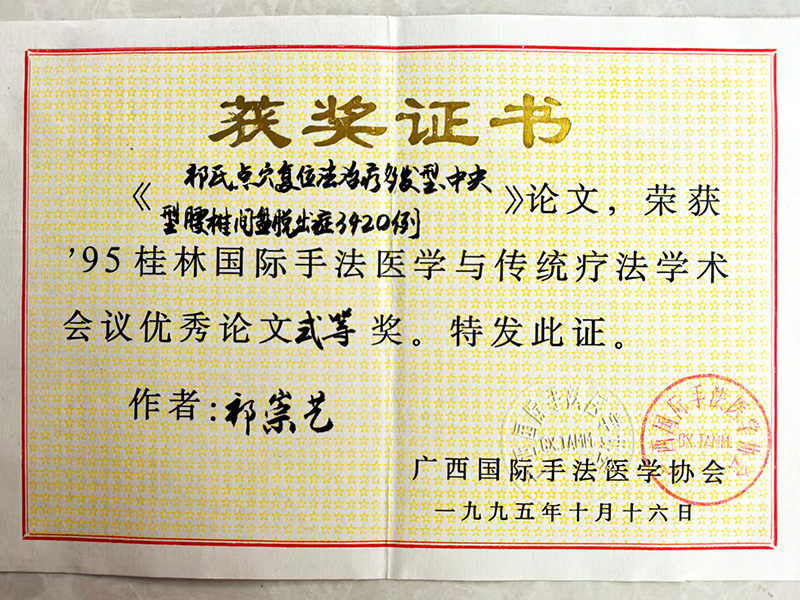 获奖证书
《祁氏点穴复位法治疗多发型、中央
型腰椎间盘脱出症3420例》论文，荣获
'95桂林国际手法医学与传统疗法学术
会议优秀论文弍等奖。特发此证。
作者：祁崇艺
广西国际手法医学协会
一九九五年十月十六日
广西国际手法医学协会